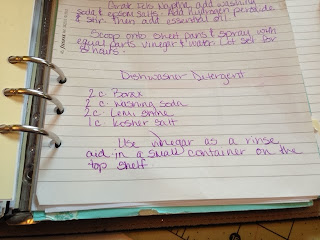 Grate Fels Naptha, add washing
soda & epsom salts. Add hydrogen peroxide
& stir. Then add essential oil.
Scoop onto sheet pans & spray with
equal parts vinegar & water. Let set for
24 hours.
Dishwasher Detergent
2 c. Borax
2 c. washing soda
2 c. Lemi shine
1 c. kosher salt
Use vinegar as a rinse
aid in a small container on the
top shelf